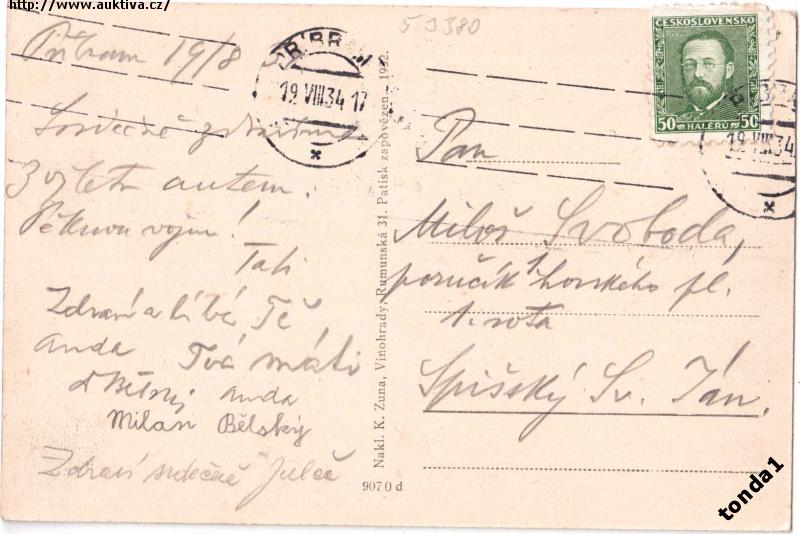 http://www.auktiva.cz/
5 J 380
Příbram 19/8
PŘÍBRAM
19.VIII.34.17
ČESKOSLOVENSKO
50 HALÉŘŮ 50
19.VIII.34
Srdečně zdravíme
z výletu autem.
Pěknou vojnu!
Tati
Zdraví a líbá Tě
anda Tvá máti
anda
Milan Bělský
Zdraví srdečně
Nakl. K. Zuna, Vinohrady, Rumunská 31. Patisk zapovězen. 1932.
9070 d
Pan
Miloš Svoboda,
poručík 1 horského pl.
1. rota
Spišský Sv. Ján.
tonda1